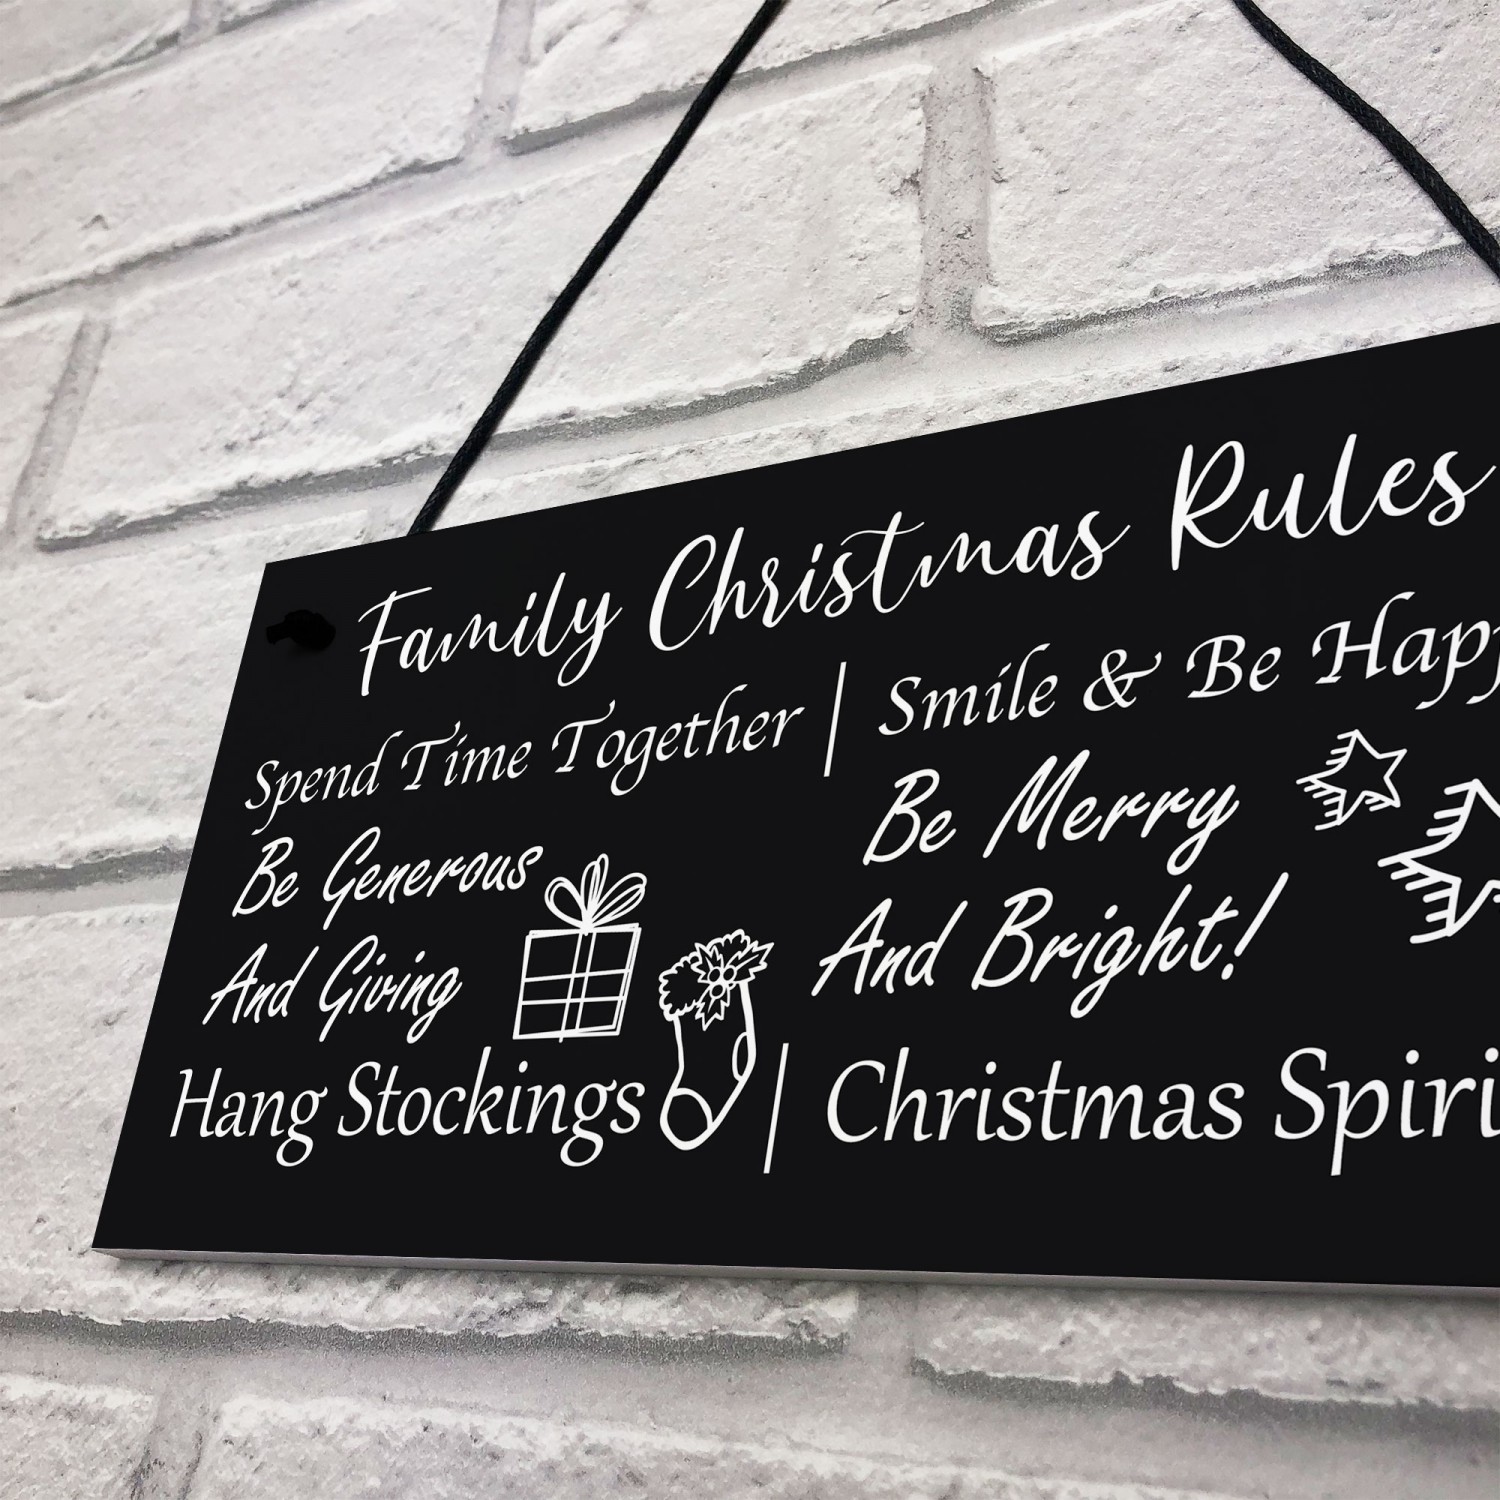 Family Christmas Rules
Spend Time Together | Smile & Be Happ
Be Generous
And Giving
Be Merry
And Bright!
Hang Stockings | Christmas Spiri